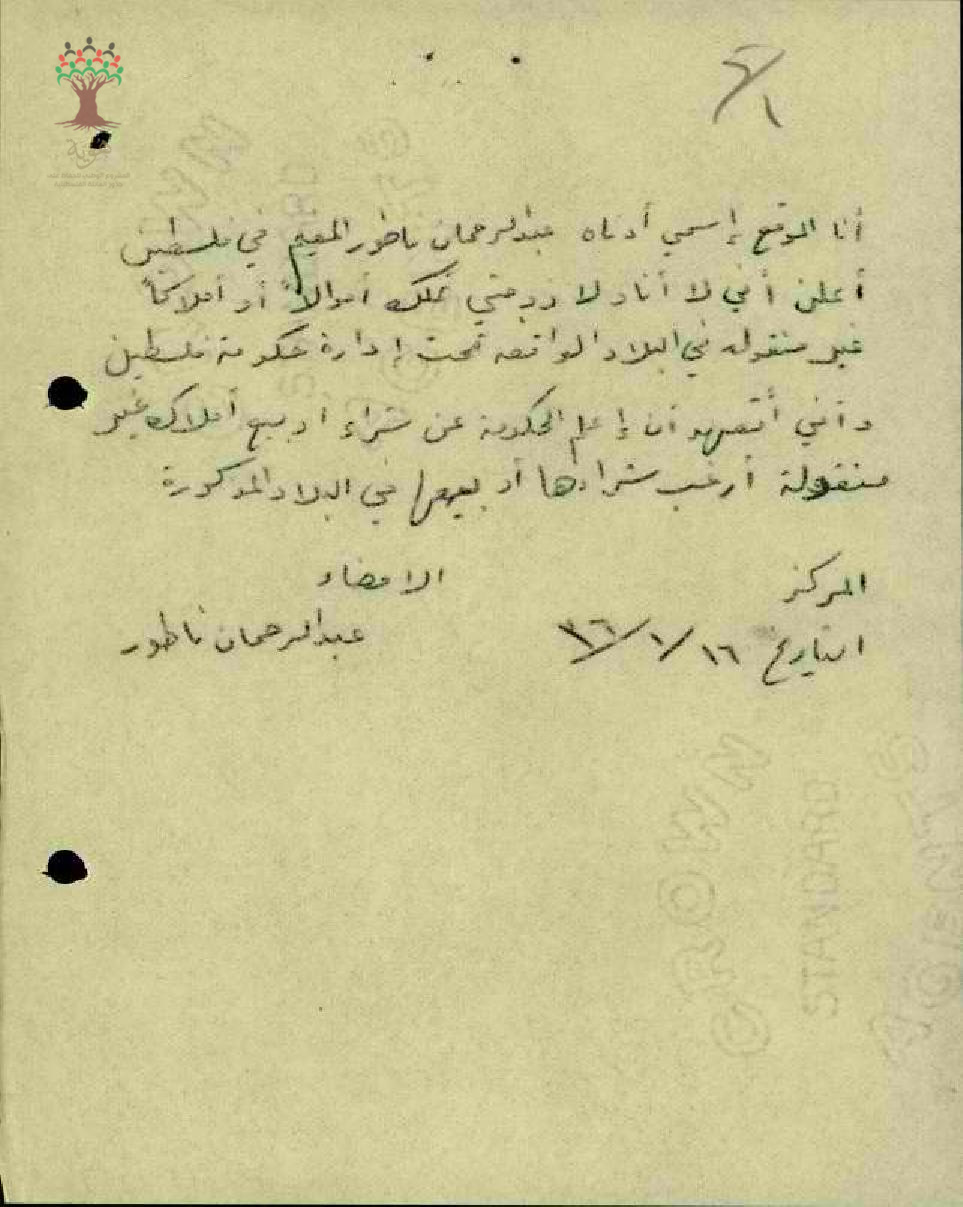 ٦/١
أنا الموقع إسمي أدناه عبدالرحمان ناطور المقيم في فلسطين
أعلن أني لا أنا ولا زوجتي نملك أموالاً أو أملاكاً
غير منقوله في البلاد الواقعه تحت إدارة حكومة فلسطين
وأنني أتعهد أن إعلم الحكومة عن شراء او بيع أملاك غير
منقولة أرغب شراءها أو بيعها في البلاد المذكورة
المركز الامضاء
التاريخ ١٦/١/٣٦ عبدالرحمان ناطور
CROWN
STANDARD
AGENTS